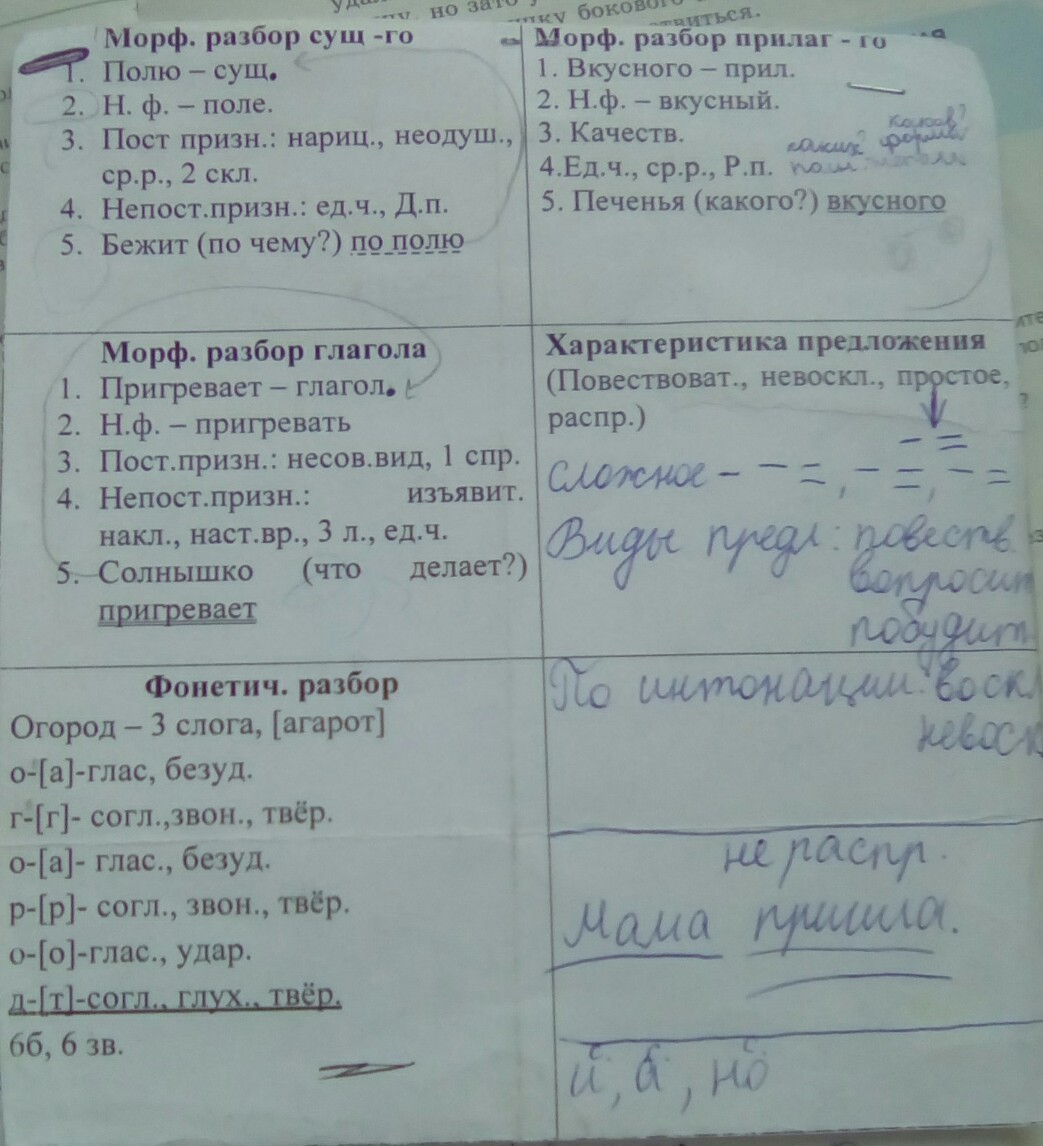 но зато
бокового
Морф. разбор сущ -го
1. Полю – сущ.
2. Н. ф. – поле.
3. Пост призн.: нариц., неодуш.,
ср.р., 2 скл.
4. Непост.призн.: ед.ч., Д.п.
5. Бежит (по чему?) по полю
Морф. разбор прилаг - го
1. Вкусного – прил.
2. Н.ф. – вкусный.
3. Качеств.
каков?
каких? форма
4.Ед.ч., ср.р., Р.п.
5. Печенья (какого?) вкусного
Морф. разбор глагола
1. Пригревает – глагол.
2. Н.ф. – пригревать
3. Пост.призн.: несов.вид, 1 спр.
4. Непост.призн.: изъявит.
накл., наст.вр., 3 л., ед.ч.
5. Солнышко (что делает?)
пригревает
Характеристика предложения
(Повествоват., невоскл., простое,
распр.)
– =
сложное – – =, – =, – =
Виды предл: повеств
вопросит
побудит
Фонетич. разбор
Огород – 3 слога, [агарот]
о-[а]-глас, безуд.
г-[г]- согл.,звон., твёр.
о-[а]- глас., безуд.
р-[р]- согл., звон., твёр.
о-[о]-глас., удар.
д-[т]-согл., глух., твёр.
6б, 6 зв.
По интонации: воскл
невоск
не распр.
Мама пришла.
и, а, но